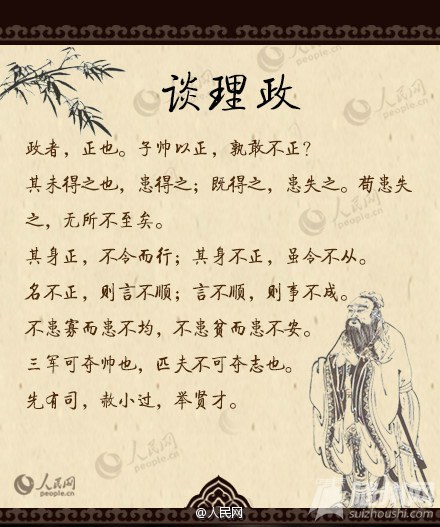 谈理政
政者，正也。子帅以正，孰敢不正？
其未得之也，患得之；既得之，患失之。苟患失
之，无所不至矣。
其身正，不令而行；其身不正，虽令不从。
名不正，则言不顺；言不顺，则事不成。
不患寡而患不均，不患贫而患不安。
三军可夺帅也，匹夫不可夺志也。
先有司，赦小过，举贤才。
人民网
people.cn
人民网
people.cn
人民网
people.cn
人民网
people.cn
@人民网
suizhoushi.com